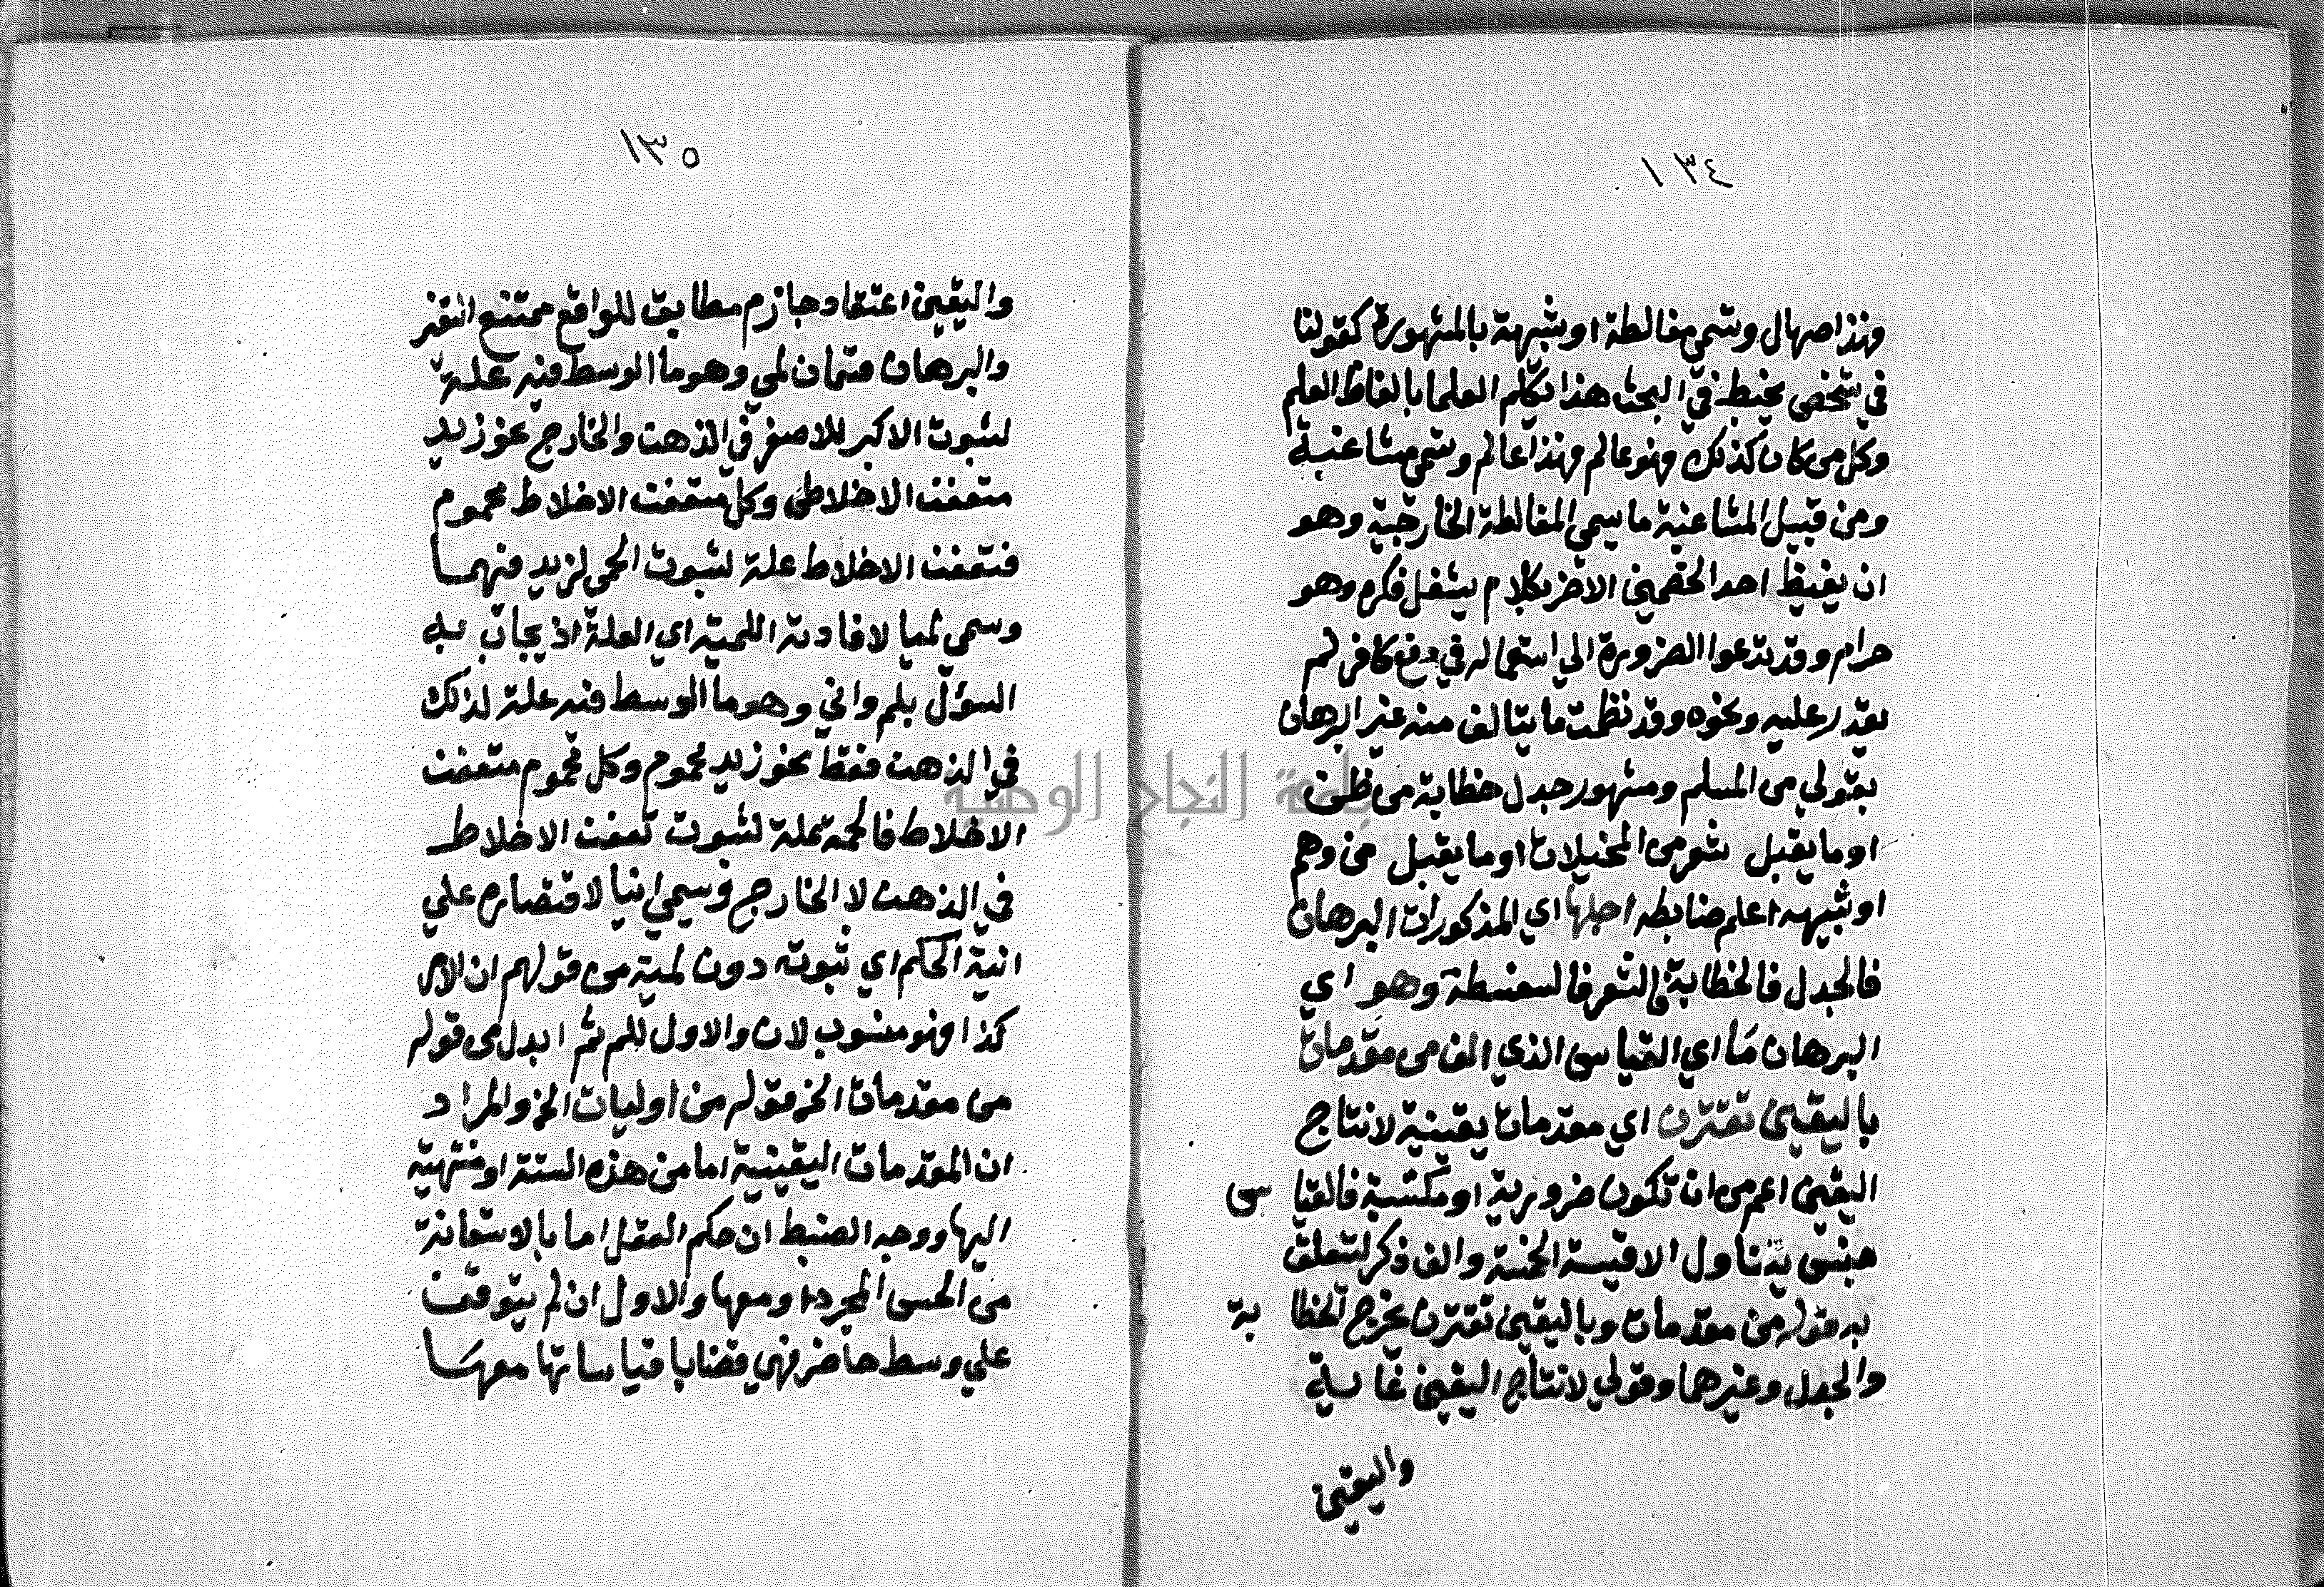 ١٣٤
فهذا صهال وتسمى مغالطة او شبيهة بالمشهورة كقولنا
في شخص يخبط في البحث هذا تكلم العلما بالفاظ العلم
وكل من كان كذلك فهو عالم فهذا عالم وتسمى مشاغبة
ومن قبيل المشاغبة ما يسمى المغالطة الخارجية وهو
ان يغيظ احد الخصمين الاخر بكلام يشغل فكره وهو
حرام وقد تدعوا الضرورة الي استعماله في دفع كافر لم
يقدر عليه ونحوه وقد نظمت ما يتالف منه غير البرهان
بقولي من المسلم ومشهور جدل خطابة من ظن
او ما يقبل شعر من المخيلات او ما يقبل من وهم
او شبيهه اعلم ضابطه اجلها اي المذكورات البرهان
فالجدل فالخطابة فالشعر فالسفسطة وهو اي
البرهان مَا اي القياس الذي الف من مقدمات
باليقين تقترن اي مقدمات يقينية لانتاج
اليقين اعم من ان تكون ضرورية او مكتسبة فالقيا س
جنس يتناول الاقيسة الخمسة والف ذكر لتعلق
به قوله من مقدمات وباليقين تقترن يخرج الخطا بة
والجدل وغيرها وقولي لانتاج اليقين غاية
واليقين
١٣٥
واليقين اعتقاد جازم مطابق للواقع ممتنع التغير
والبرهان قسمان لمي وهو ما الوسط فيه علة
لثبوت الاكبر للاصغر في الذهن والخارج نحو زيد
متعفن الاخلاط وكل متعفن الاخلاط محموم
فتعفن الاخلاط علة لثبوت الحمى لزيد فيهما
وسمى لميا لافادته اللمية اي العلة اذ يجاب به
السؤل بلم واني وهو ما الوسط فيه علة لذلك
في الذهن فقط نحو زيد محموم وكل محموم متعفن
الاخلاط فالحمة علة لثبوت تعفن الاخلاط
في الذهن لا الخارج وسمي انيا لاقتصاره علي
انية الحكم اي ثبوته دون لمية من قولهم ان الامر
كذا فهو منسوب لان والاول للم ثم ابدل من قوله
من مقدمات الخ قوله من اوليات الخ والمراد
ان المقدمات اليقينية اما من هذه الستة او منتهية
اليها ووجه الضبط ان حكم العقل اما بالاستعانة
من الحس المجرد او معها والاول ان لم يتوقف
علي وسط حاضر فهي قضايا قياساتها معها
جامعة النجاح الوطنية